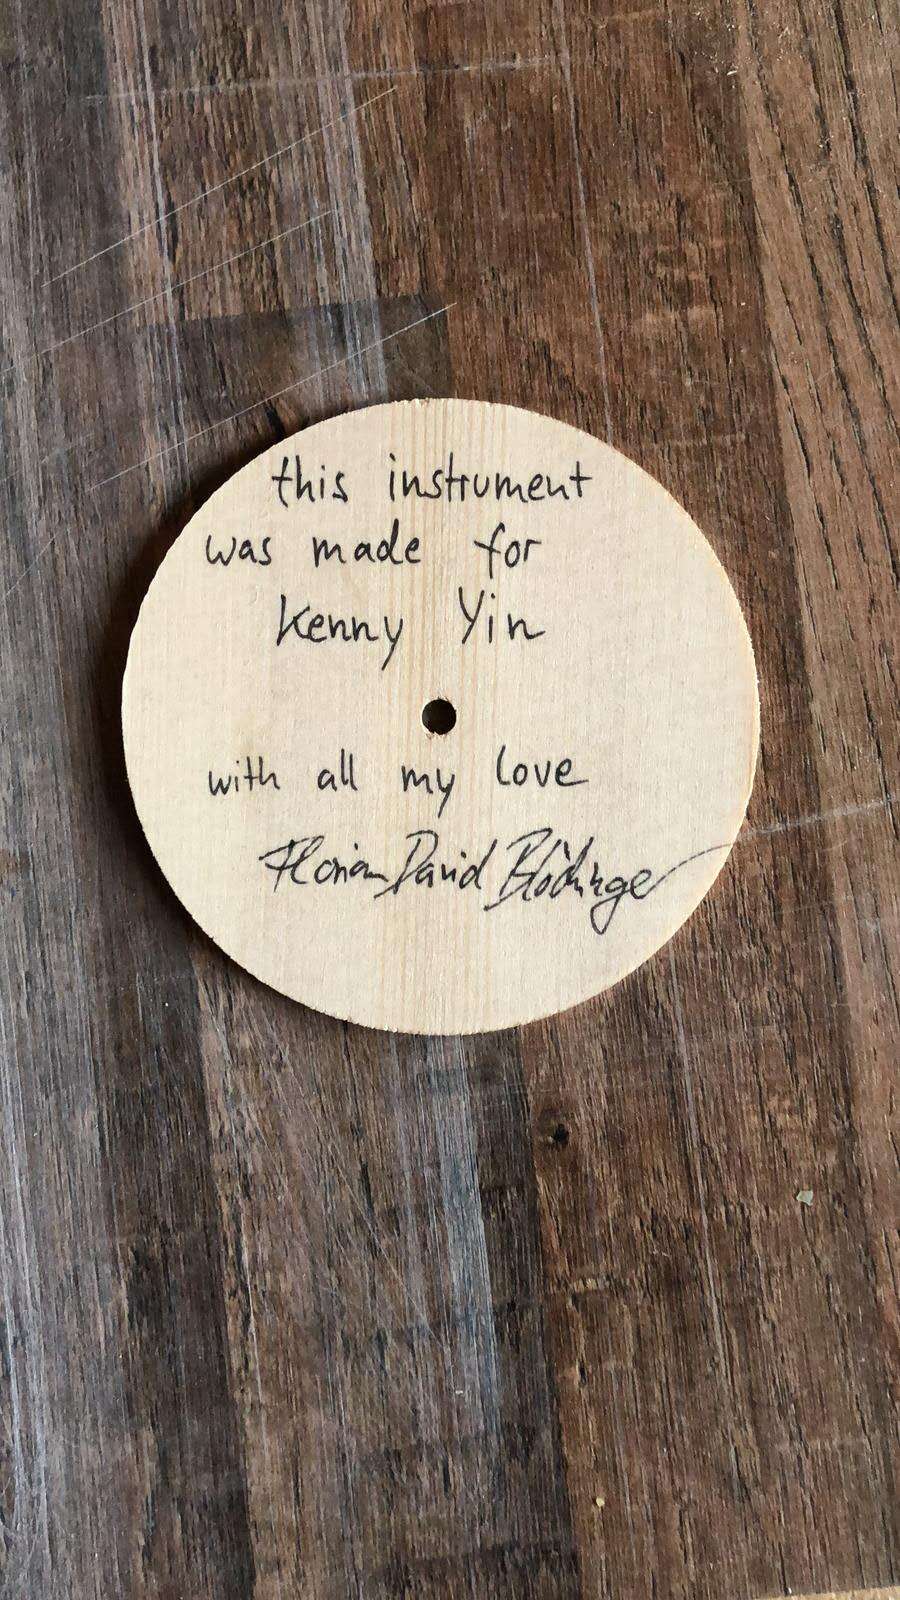 this instrument
was made for
Kenny Yin
with all my love
Florian David Blöchinger